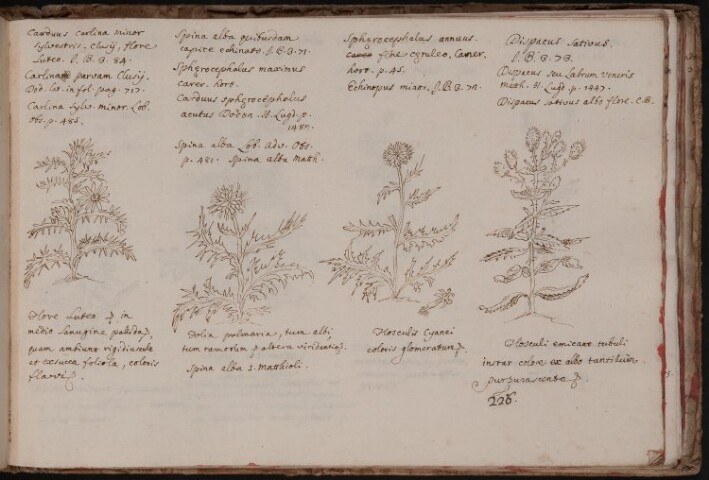 Carduus carlina minor
sylvestris. Clusij, flore
Luteo. J. B. 3. 84.
Carlina parvam Clusij.
Did. lat. in fol. pag. 717.
Carlina sylv. minor. Lob.
obs. p. 485.
Spina alba quibusdam
capite echinato. J. B. 3. 71.
Sphærocephalus maximus
camer. hort.
Carduus sphærocephalus
acutus Dodon. H. Lugd. p.
1480.
Spina alba Lob. Adv. Obs.
p. 481. Spina alba Math.
Sphærocephalus annuus
flore cæruleo, Camer.
hort. p. 45.
Echinopus minor. J. B. 3. 72.
Dispacus sativus.
J. B. 3. 73.
Dispacus seu Labrum Veneris
Math. H. Lugd. p. 1447.
Dispacus sativus albo flore. C. B.
Flore Luteo in
medio lanugine
quam ambiunt rigidiuscula
et exsucca foliola, coloris
flavi
Folia pulmaria, tum albi,
tum ramorum altera
Spina alba S. Matthioli.
Flosculis Cyanei
coloris
Flosculi emicant tubuli
instar colore ex albo tantillum
purpurascente
226.